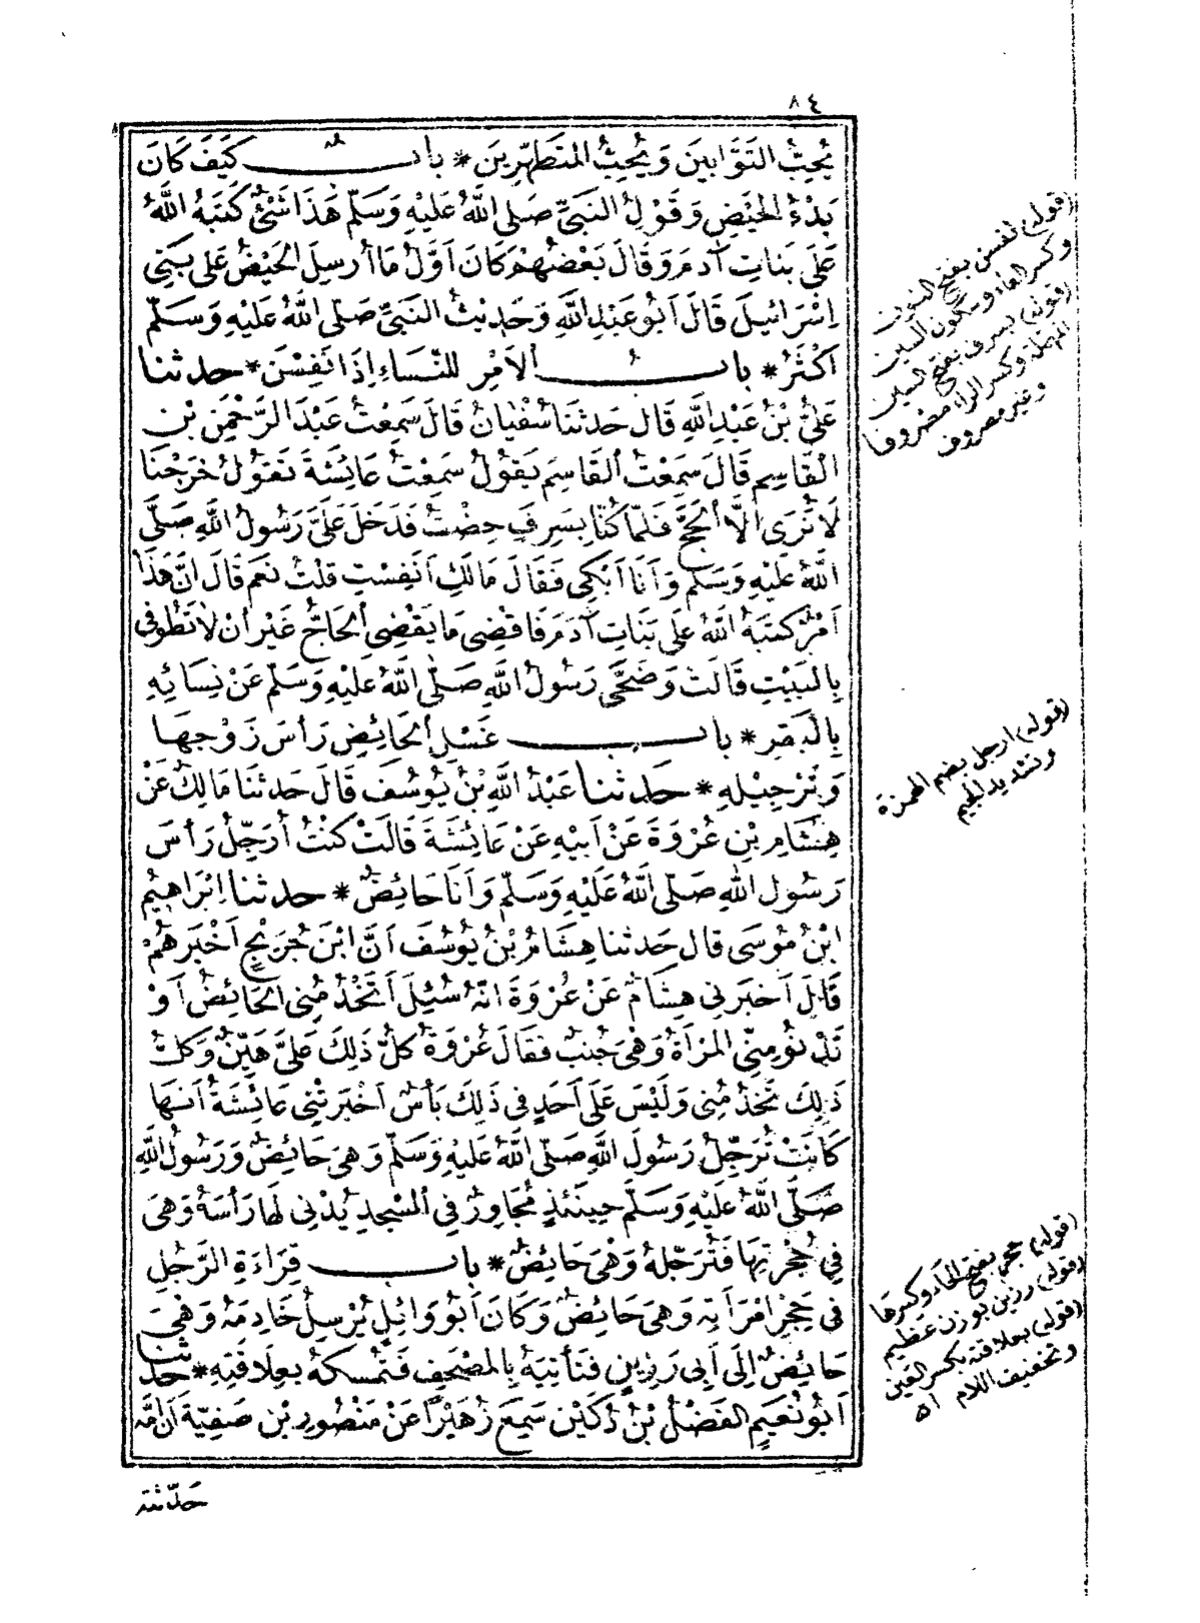 ٨٤
يُحِبُّ التَّوَّابِينَ وَيُحِبُّ المُتَطَهِّرِينَ * بابٌ كَيْفَ كَانَ
بَدْءُ الحَيْضِ وَقَوْلُ النَّبِيِّ صَلَّى اللهُ عَلَيْهِ وَسَلَّمَ هَذَا شَيْءٌ كَتَبَهُ اللهُ
عَلَى بَنَاتِ آدَمَ وَقَالَ بَعْضُهُمْ كَانَ أَوَّلُ مَا أُرْسِلَ الحَيْضُ عَلَى بَنِي
إِسْرَائِيلَ قَالَ أَبُو عَبْدِ اللهِ وَحَدِيثُ النَّبِيِّ صَلَّى اللهُ عَلَيْهِ وَسَلَّمَ
أَكْثَرُ * بابُ الأَمْرِ لِلنِّسَاءِ إِذَا نَفِسْنَ * حدثنا
عَلِيُّ بْنُ عَبْدِ اللهِ قَالَ حَدثَنَا سُفْيَانُ قَالَ سَمِعْتُ عَبْدَ الرَّحْمَنِ بْنَ
الْقَاسِمِ قَالَ سَمِعْتُ الْقَاسِمَ يَقُولُ سَمِعْتُ عَائِشَةَ تَقُولُ خَرَجْنَا
لَا نُرَى إِلَّا الْحَجَّ فَلَمَّا كُنَّا بِسَرِفَ حِضْتُ فَدَخَلَ عَلَيَّ رَسُولُ اللهِ صَلَّى
اللهُ عَلَيْهِ وَسَلَّمَ وَأَنَا أَبْكِي فَقَالَ مَالَكِ أَنَفِسْتِ قُلْتُ نَعَمْ قَالَ إِنَّ هَذَا
أَمْرٌ كَتَبَهُ اللهُ عَلَى بَنَاتِ آدَمَ فَاقْضِي مَا يَقْضِي الْحَاجُّ غَيْرَ أَنْ لَا تَطُوفِي
بِالْبَيْتِ قَالَتْ وَضَحَّى رَسُولُ اللهِ صَلَّى اللهُ عَلَيْهِ وَسَلَّمَ عَنْ نِسَائِهِ
بِالْبَقَرِ * باب غَسْلِ الْحَائِضِ رَأْسَ زَوْجِهَا
وَتَرْجِيْلِهِ * حَدثنا عَبْدُ اللهِ بْنُ يُوسُفَ قَالَ حَدثَنَا مَالِكٌ عَنْ
هِشَامِ بْنِ عُرْوَةَ عَنْ أَبِيهِ عَنْ عَائِشَةَ قَالَتْ كُنْتُ أُرَجِّلُ رَأْسَ
رَسُولِ اللهِ صَلَّى اللهُ عَلَيْهِ وَسَلَّمَ وَأَنَا حَائِضٌ * حدثنا إِبْرَاهِيمُ
ابْنُ مُوسَى قال حَدثنا هِشَامُ بْنُ يُوسُفَ أَنَّ ابْنَ جُرَيْجٍ أَخْبَرَهُمْ
قَالَ أَخبَرَنِي هِشَامٌ عَنْ عُرْوَةَ أنّهُ سُئِلَ أَتَخْدُمُنِي الحَائِضُ أَوْ
تَدْنُو مِنِّي المَرْأَةُ وَهْيَ جُنبٌ فَقَالَ عُرْوَةُ كُلُّ ذَلِكَ عَلَيَّ هَيِّنٌ وَكُلُّ
ذَلِكَ تَخْدُمُنِي وَلَيْسَ عَلَى أَحَدٍ فِي ذَلِكَ بَأْسٌ أَخْبَرَتْنِي عَائِشَةُ أَنهَا
كَانَتْ تُرَجِّلُ رَسُولَ اللهِ صَلَّى اللهُ عَلَيْهِ وَسَلَّمَ وَهيَ حَائِضٌ وَرَسُولُ اللهِ
صَلَّى اللهُ عَلَيْهِ وَسَلَّمَ حِينَئِذٍ مُجَاوِرٌ فِي المَسْجِدِ يُدْنِي لَهَا رَأْسَهُ وَهْيَ
فِي حُجْرَتِهَا فَتُرَجِّلهُ وَهْيَ حَائِضٌ * باب قِرَاءَةِ الرَّجُلِ
فِي حَجْرِ امْرَأَتِهِ وَهيَ حَائِضٌ وَكَانَ أَبُو وَائِلٍ يُرْسِلُ خَادِمَهُ وَهْيَ
حَائِضٌ إِلَى أَبِي رَزِينٍ فَتَأْتِيهُ بِالمُصْحَفِ فَتُمْسِكهُ بِعِلَاقَتِهِ * حدثنا
أَبُو نُعَيمٍ الفَضْلُ بْنُ دُكَيْنٍ سَمِعَ زُهَيْرًا عَنْ مَنْصُورِ بْنِ صَفِيَّةَ أَنَّ أُمَّهُ
حَدَّثته
(قوله) نفسن بفتح النون
وكسر الفاء وسكون السين
(قوله) بسرف بفتح السين
المهملة وكسر الراء مصروفا
وغير مصروف
(قوله) ارجل بضم الهمزة
وتشديد الجيم
(قوله) حجر بفتح الحاء وكسرها
(قوله) رزين بوزن عظيم
(قوله) بعلاقته بكسر العين
وتخفيف اللام اه